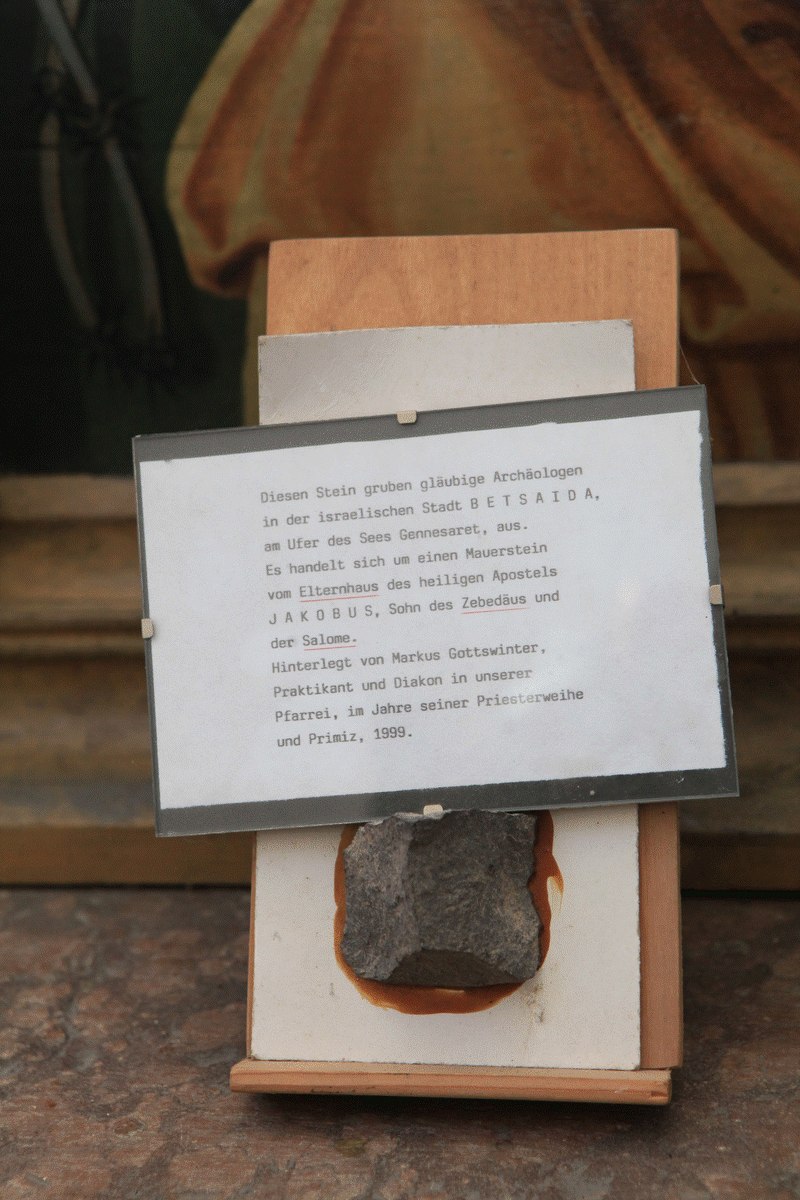 Diesen Stein gruben gläubige Archäologen
in der israelischen Stadt B E T S A I D A,
am Ufer des Sees Gennesaret, aus.
Es handelt sich um einen Mauerstein
vom Elternhaus des heiligen Apostels
J A K O B U S, Sohn des Zebedäus und
der Salome.
Hinterlegt von Markus Gottswinter,
Praktikant und Diakon in unserer
Pfarrei, im Jahre seiner Priesterweihe
und Primiz, 1999.